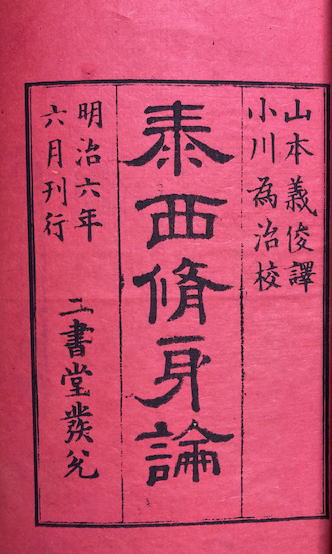 山本義俊譯
小川為治校
泰西脩身論
明治六年
六月刊行
二書堂發兌